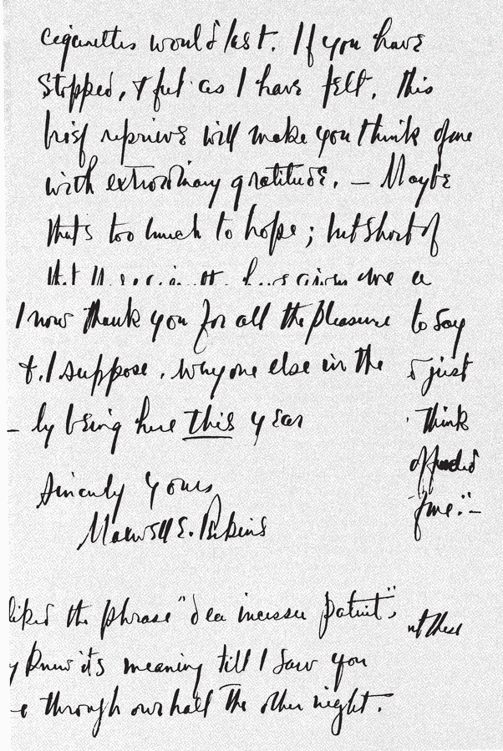 cigarettes would last. If you have
stopped, & feel as I have felt, this
brief reprieve will make you think of me
with extrordinary gratitude. — Maybe
that's too much to hope; but short of
that has given me a
I now thank you for all the pleasure to say
& I suppose, everyone else in the & just
— by being here this year think
offended
Sincerely Yours fine."—
Maxwell E. Perkins
liked the phrase "dea incessu patuit", these
knew its meaning till I saw you
through our hall the other night.